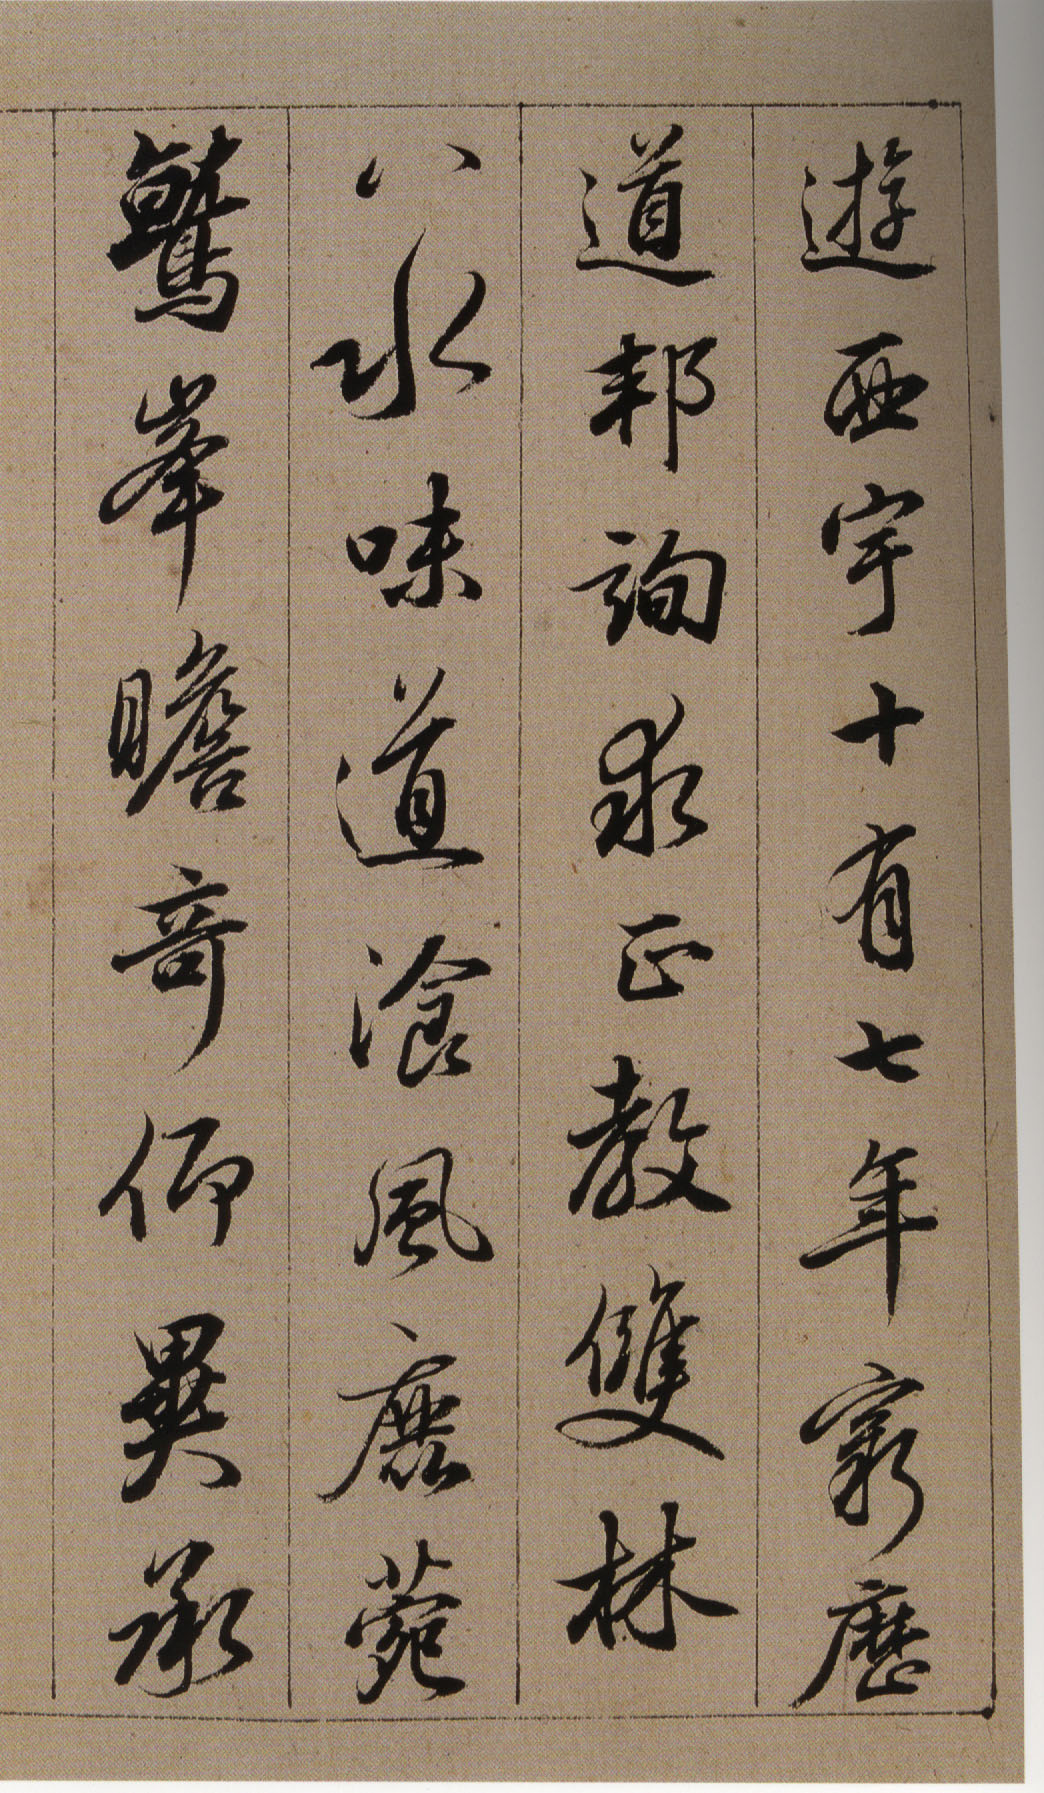 遊西宇十有七年窮歷
道邦詢求正教雙林
八水味道飡風鹿菀
鷲峯瞻奇仰異承